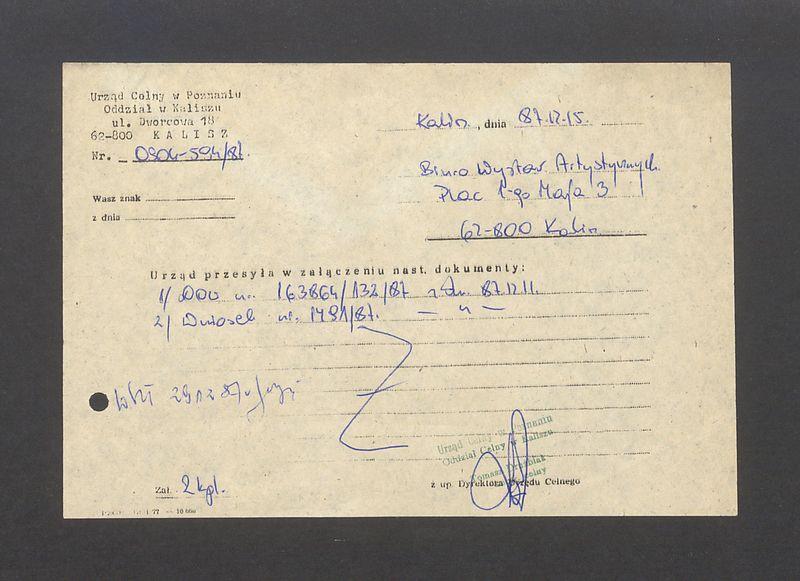 Urząd Celny w Poznaniu
Oddział w Kaliszu
ul. Dworcowa 18
62-800 KALISZ
Nr. 0904-594/87.
Kalisz, dnia 87.12.15.
Biuro Wystaw Artystycznych
Plac 1-go Maja 3
62-800 Kalisz
Wasz znak
z dnia
Urząd przesyła w załączeniu nast. dokumenty:
1/ nr. 163864/132/87 z dn. 87.12.11.
2/ Wniosek nr. 1491/87. — " —
Urząd Celny w Poznaniu
Oddział Celny w Kaliszu
Tomasz
z up. Dyrektora Urzędu Celnego
Zał. 2 kpl.